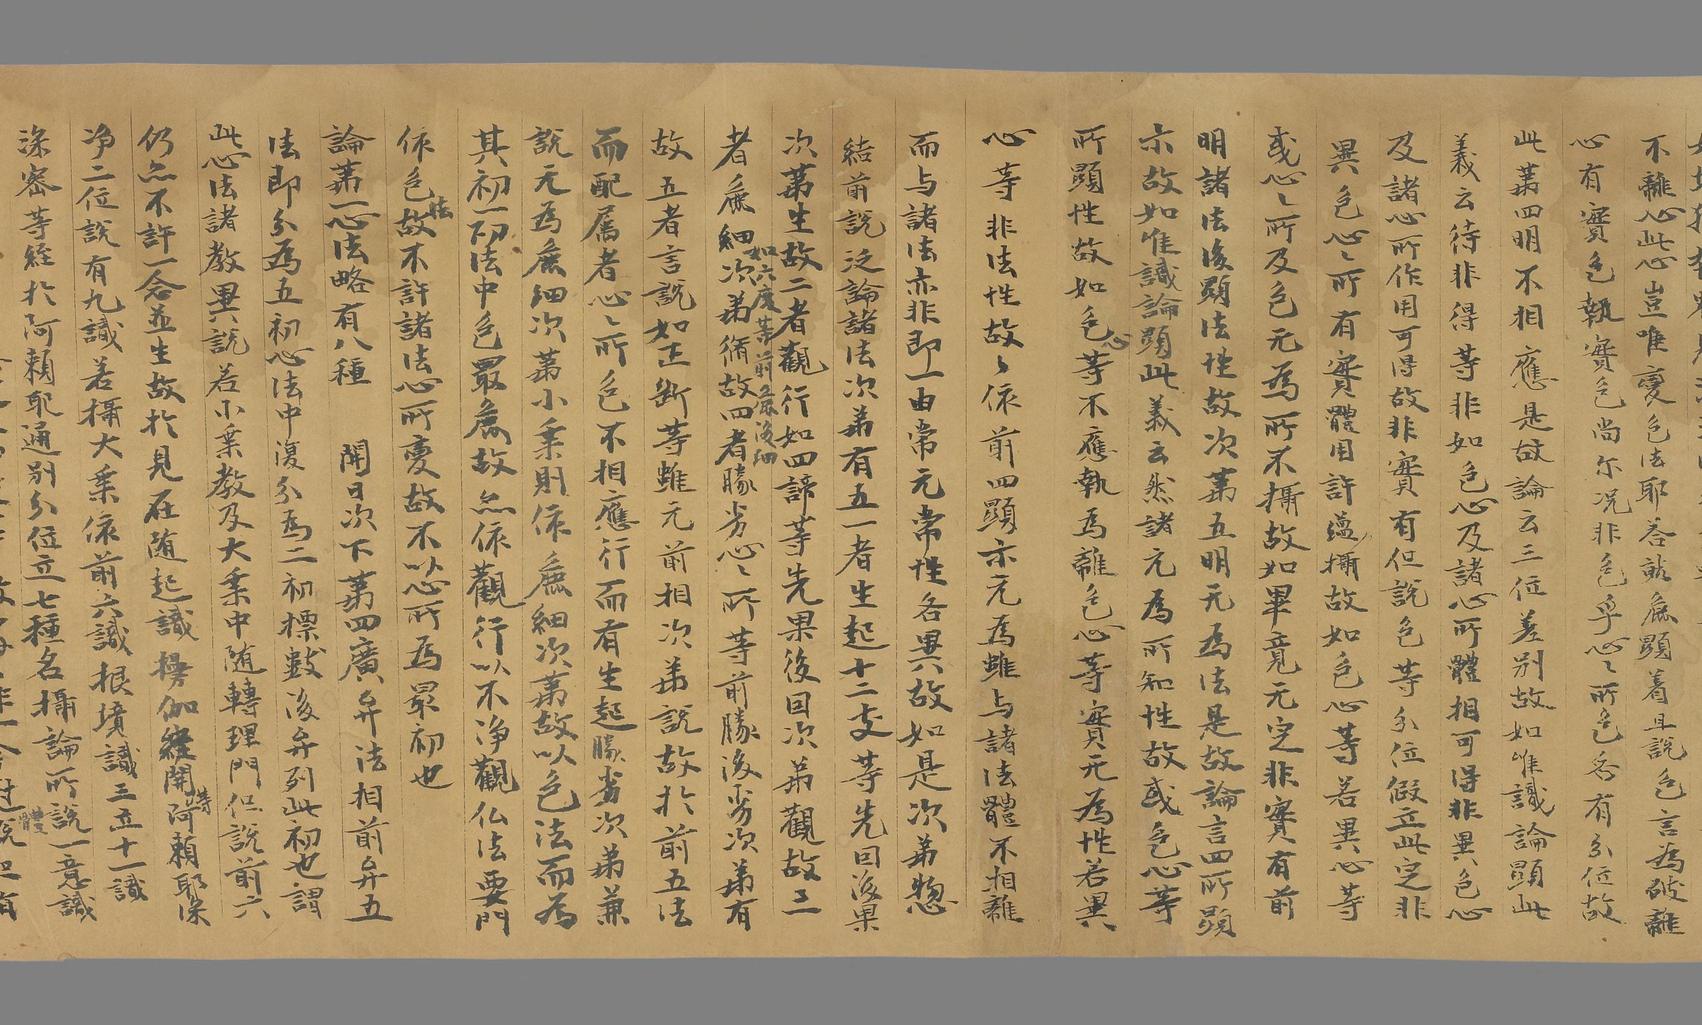 不離心此心豈唯變色法耶荅就麁顯着且說色言為破離
心有實色執實色尚尒况非色乎心〻所色各有分位故
此苐四明不相應是故論云三位差別故如唯識論顯此
義云待非得等非如色心及諸心所體相可得非異色心
及諸心所作用可得故非實有但說色等分位假立此定非
異色心〻所有實體用許蘊攝故如色心等若異心等
或心〻所及色无為所不攝故如畢竟无定非實有前
明諸法後顯法性故次苐五明无為法是故論言四所顯
示故如唯識論顯此義云然諸无為所知性故或色心等
所顯性故如色心等不應執為離色心等實无為性若異
心等非法性故〻依前四顯示无為雖与諸法體不相離
而与諸法亦非即一由常无常性各異故如是次苐惣
結前說泛論諸法次苐有五一者生起十二支等先因後果
次苐生故二者觀行如四諦等先果後因次苐觀故三
者麁細次苐脩故四者勝劣心〻所等前勝後劣次苐有
如六度等前麁後細
故五者言說如正斷等雖无前相次苐說故於前五法
而配属者心〻所色不相應行而有生起勝劣次苐兼
說无為麁細次苐小乗則依麁細次苐故以色法而為
其初一切法中色最麁故亦依觀行以不净觀仏法要門
依色法故不許諸法心所變故不以心所為最初也
論苐一心法略有八種　開日次下苐四廣弁法相前弁五
法即分為五初心法中復分為二初標數後弁列此初也謂
此心法諸教異說若小乗教及大乗中随轉理門但說前六
仍亦不許一念並生故於見在随起識揆伽經開阿賴耶保
等
净二位說有九識若攝大乗依前六識根境識三立十一識
深密等經於阿賴耶通別分位立七種名攝論所說一意識
體